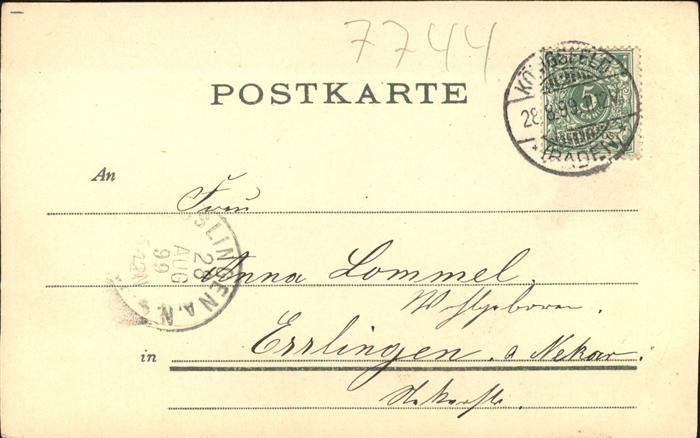 7744
POSTKARTE
KÖNIGSFELD
28.8.99.
(BADEN)
5
An
Frau
Anna Lommel.
Wohlgeboren.
in Esslingen. a Nekar.
ESSLINGEN A. N.
28
AUG
99